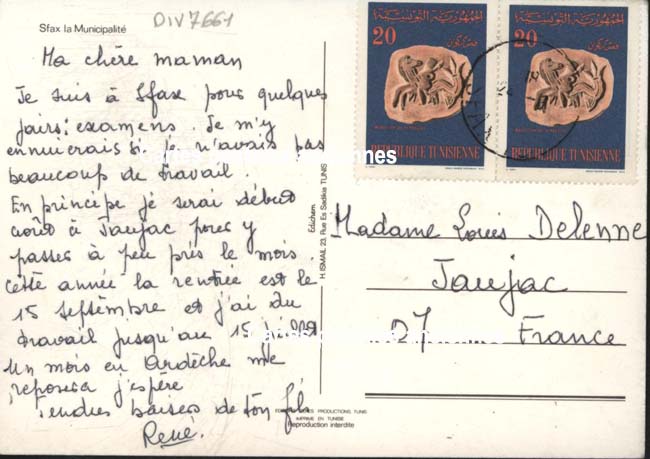 Sfax la Municipalité
DIV7661
Ma chère maman
Je suis à Sfax pour quelques
jours: examens. Je m'y
ennuierais si je n'avais pas
beaucoup de travail.
En principe je serai début
août à Jaujac pour y
passer à peu près le mois.
Cette année la rentrée est le
15 septembre et j'ai du
travail jusqu'au 15 juillet
Un mois en Ardèche me
reposera j'espère
Tendres baisers de ton fils
René.
Edichem
H. ISMAIL 23, Rue Es Sadikia TUNIS
PRODUCTIONS, TUNIS
IMPRIMÉ EN TUNISIE
Reproduction interdite
الجمهورية التونسية
20
REPUBLIQUE TUNISIENNE
الجمهورية التونسية
20
REPUBLIQUE TUNISIENNE
Madame Louis Delenne
Jaujac
07 France